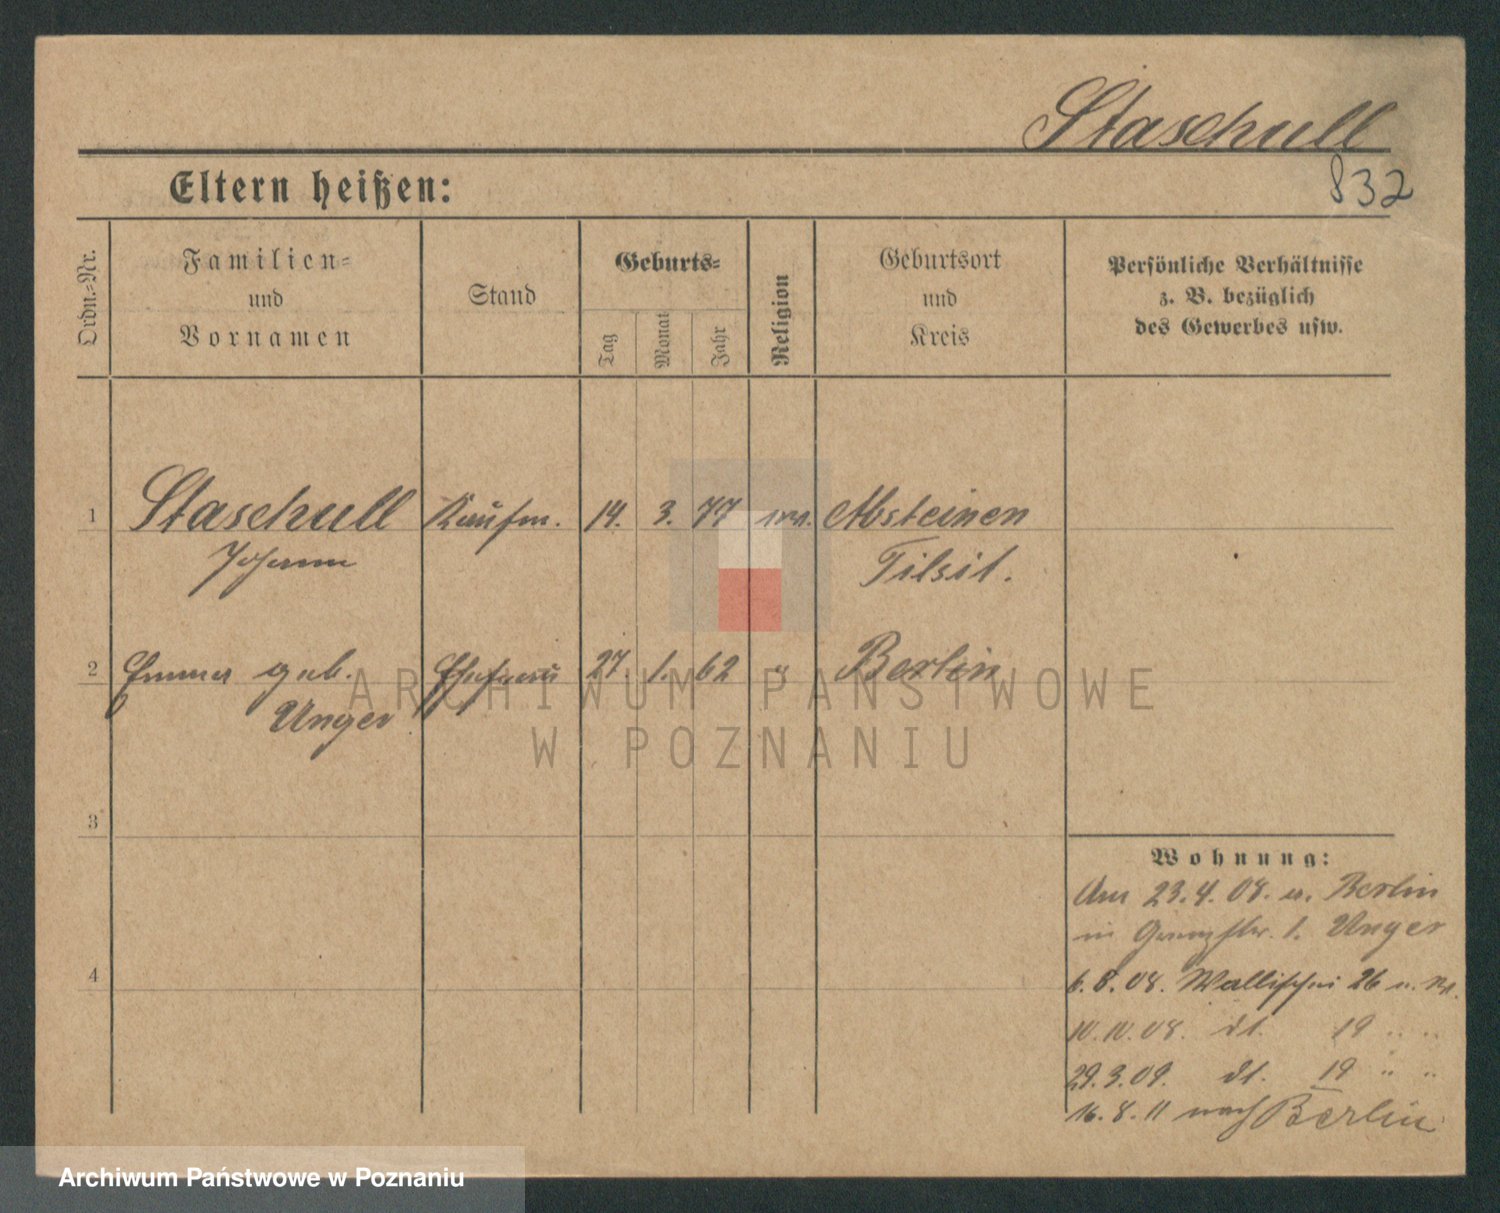 Staschull
832
Eltern heißen:
Ordn.-Nr.
Familien-
und
Vornamen
Stand
Geburts-
Tag
Monat
Jahr
Religion
Geburtsort
und
Kreis
Persönliche Verhältnisse
z. B. bezüglich
des Gewerbes usw.
1 Staschull Kaufm. 14. 3. 77 Absteinen
Johann Tilsit.
2 Emma geb. Ehefrau 27. 1. 62 " Berlin
Unger
3
4
Wohnung:
Am 23.4.08. Berlin
in 1. Unger
6.8.08. Wallischei 26
10.10.08. dt. 19 " "
29.3.09. dt. 19 " "
16.8.11 nach Berlin
ARCHIWUM PAŃSTWOWE
W POZNANIU
Archiwum Państwowe w Poznaniu